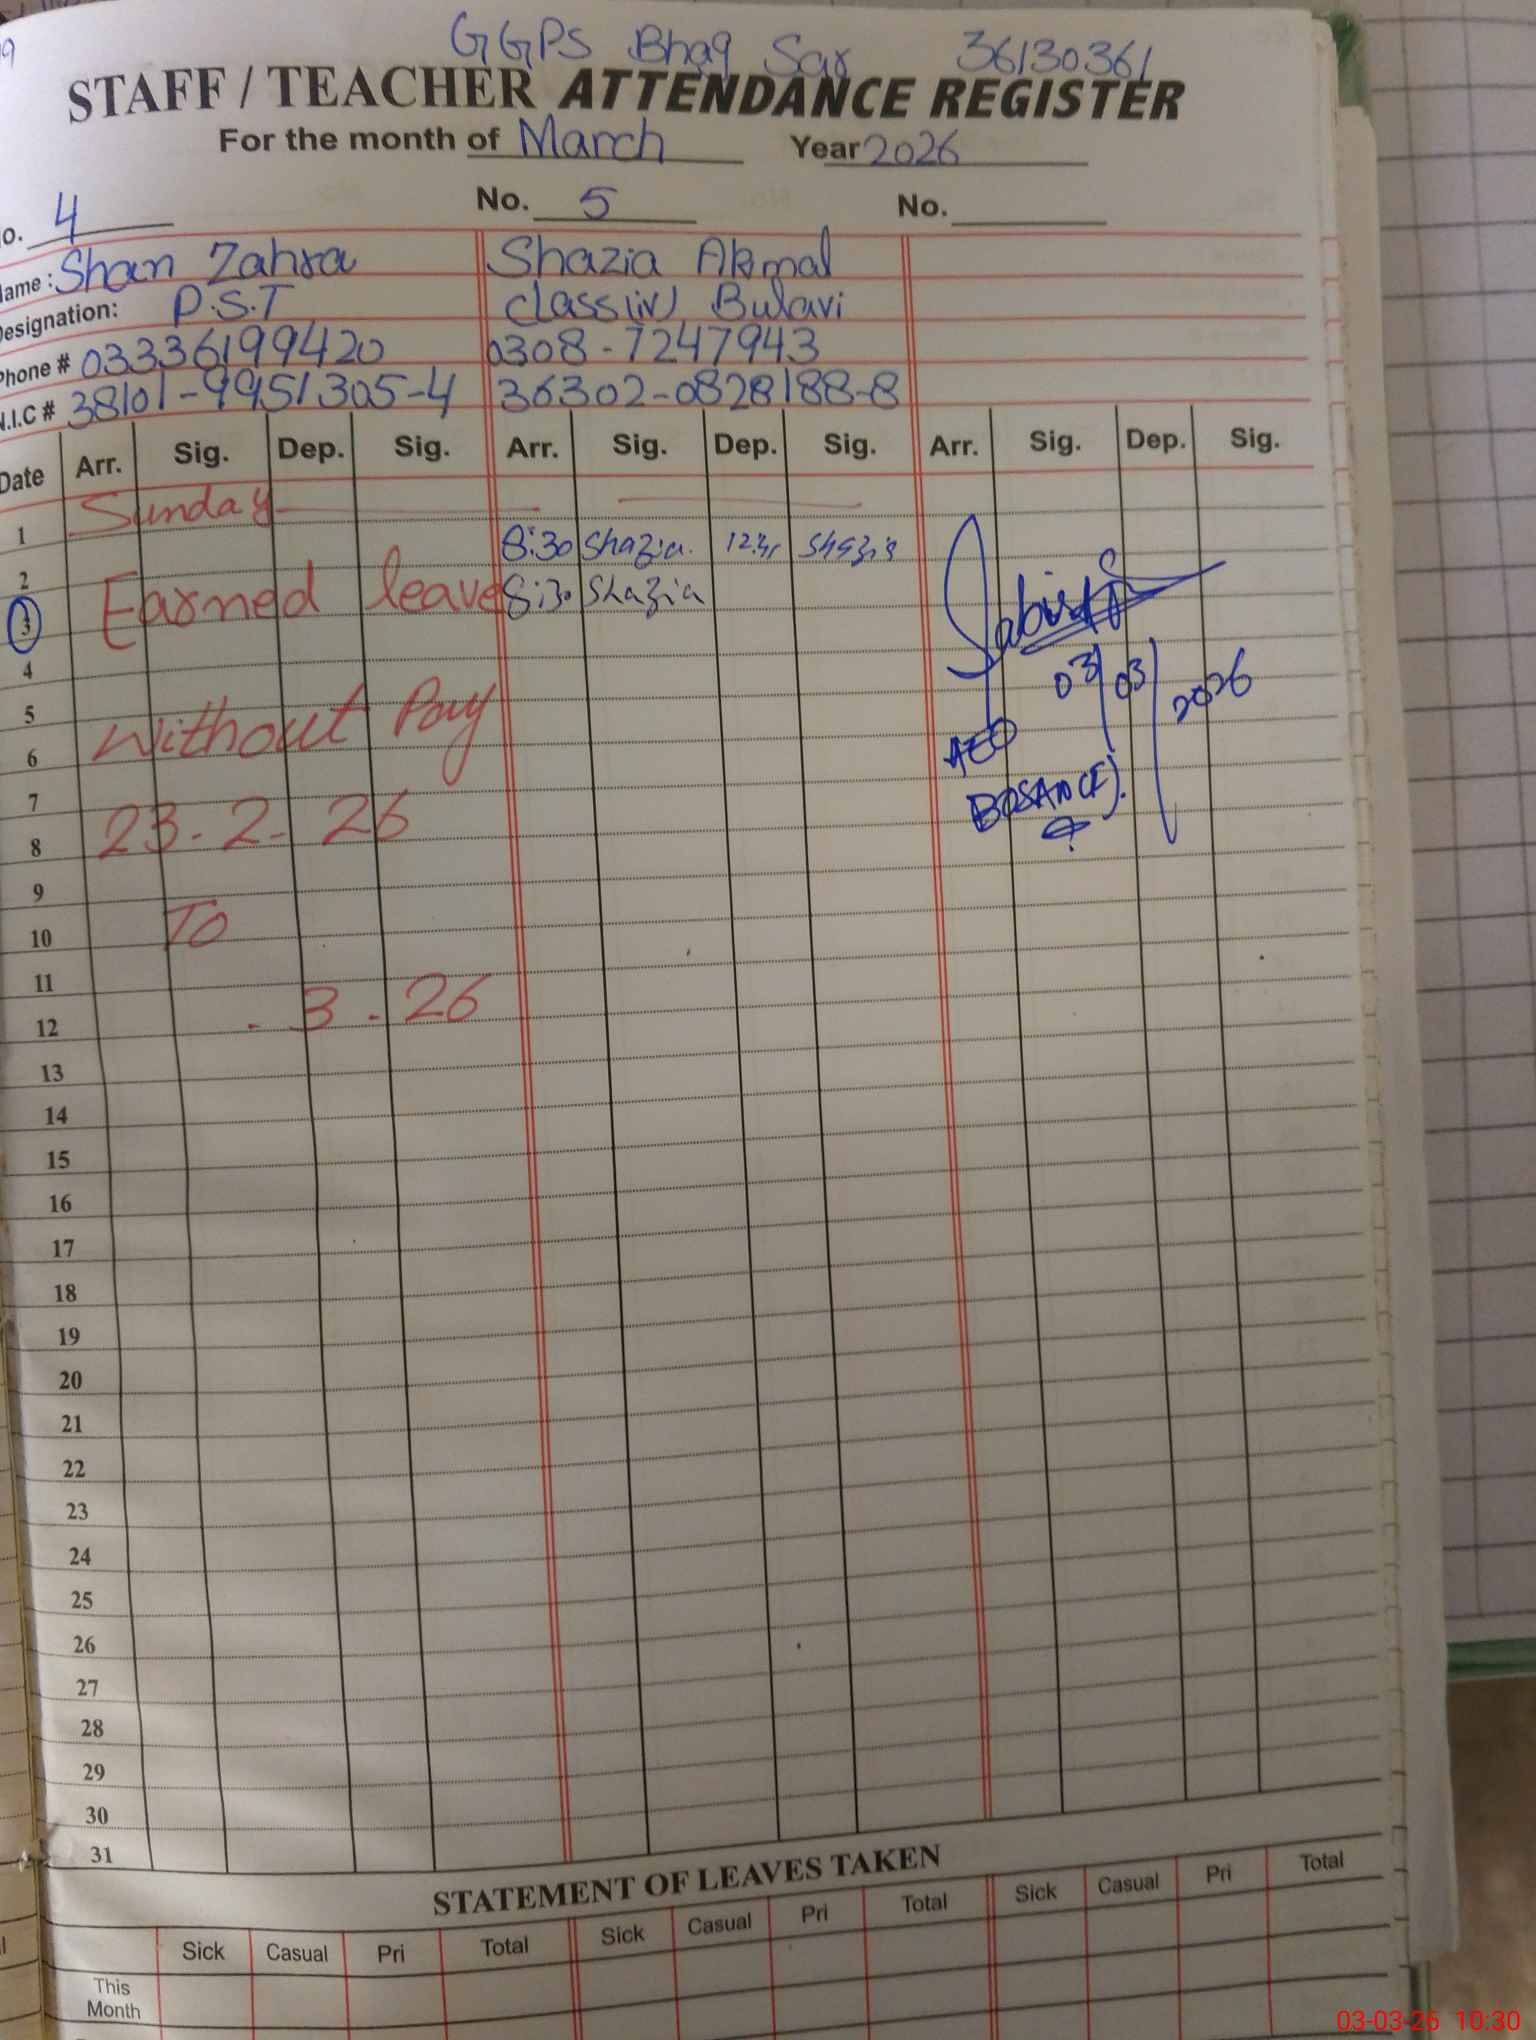 GGPS Bhaq Sar 36130361
STAFF / TEACHER ATTENDANCE REGISTER
For the month of March Year 2026
o. 4 No. 5 No.
Name: Shan Zahra Shazia Akmal
Designation: P.S.T class(iv) Bulavi
Phone # 03336199420 0308-7247943
N.I.C # 38101-9951305-4 36302-0828188-8
Date Arr. Sig. Dep. Sig. Arr. Sig. Dep. Sig. Arr. Sig. Dep. Sig.
1 Sunday
2 8:30 Shazia. Shazia
3 Earned leave 8:30 Shazia
4 03/03/2026
5
6 Without Pay AEO
7 BOSAN(F).
8 23-2-26
9
10 To
11
12 . 3 . 26
13
14
15
16
17
18
19
20
21
22
23
24
25
26
27
28
29
30
31
STATEMENT OF LEAVES TAKEN
Sick Casual Pri Total Sick Casual Pri Total Sick Casual Pri Total
This
Month
03-03-26 10:30